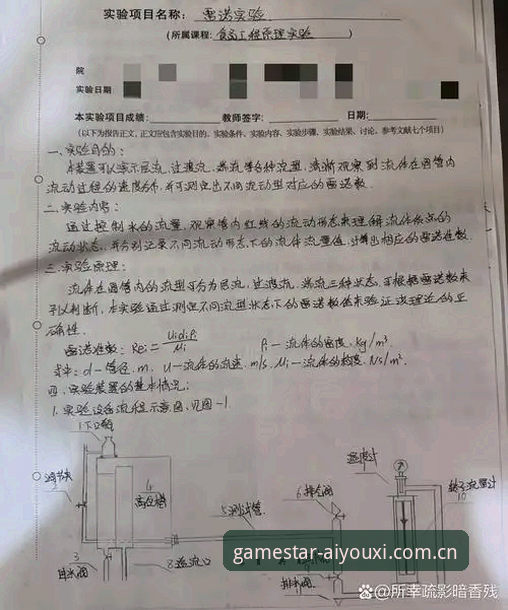 实验项目名称：雷诺实验
(所属课程：食品工程原理实验)
院
实验日期
本实验项目成绩：　教师签字：　日期：
(以下为报告正文，正文应包含实验目的、实验条件、实验内容、实验步骤、实验结果、讨论、参考文献七个项目)
一、实验目的：
本装置可以演示层流，过渡流，湍流等各种流型，清晰观察到流体在圆管内
流动过程的速度分布，并可测出不同流动型对应的雷诺数．
二、实验内容：
通过控制水的流量，观察管内红线的流动形态来理解流体质点的
流动状态，并分别记录不同流动形态下的流体流量值，计算出相应的雷诺准数．
三、实验原理：
流体在圆管内的流型可分为层流，过渡流，湍流三种状态，可根据雷诺数来
予以判断．本实验通过测定不同流型状态下的雷诺数值来验证该理论的正
确性．
雷诺准数：Rei = Uidiρi/μi　ρi—流体的密度，kg/m³．
式中：d—管径，m，U—流体的流速，m/s．μi—流体的粘度，Ns/m²．
四、实验装置的基本情况：
1．实验设备流程示意图，见图-1
1下口瓶
调节夹
2
3
排水阀
4
高位槽
5测试管
6排气阀
8溢流口
温度计
转子流量计
10
排水阀
gamestar-aiyouxi.com.cn
@所幸疏影暗香残